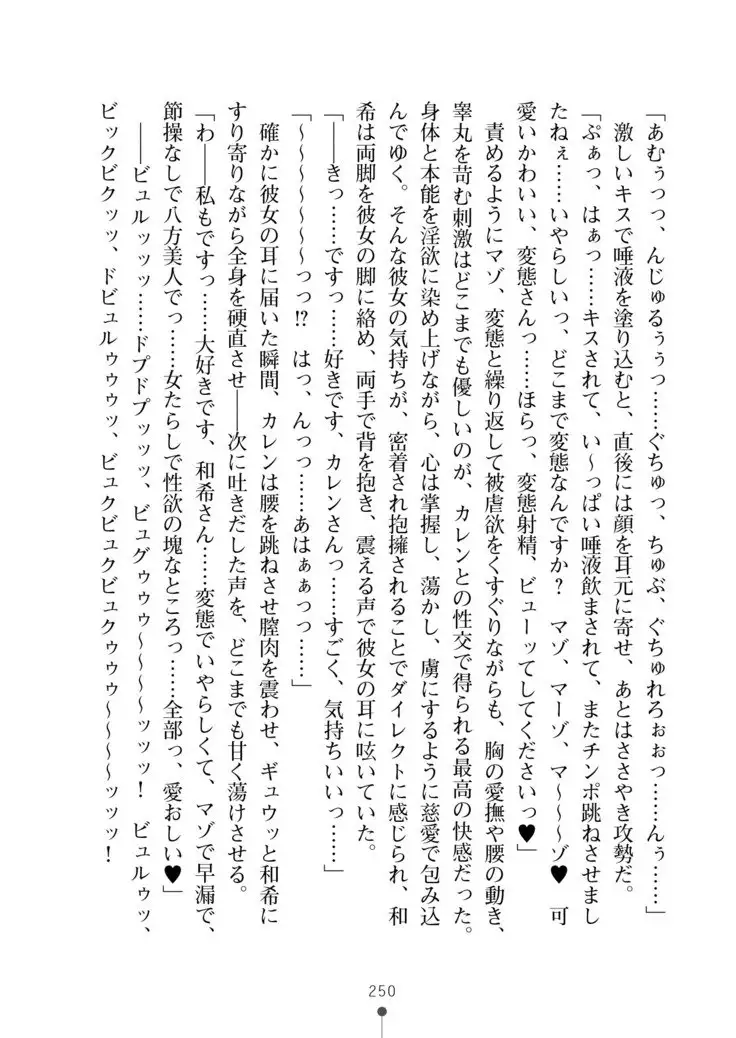 「あむぅっっ、んじゅるぅぅっ……ぐちゅっ、ちゅぶ、ぐちゅれろぉぉっ……んぅ……」
激しいキスで唾液を塗り込むと、直後には顔を耳元に寄せ、あとはささやき攻勢だ。
「ぷぁっ、はぁっ……キスされて、い～っぱい唾液飲まされて、またチンポ跳ねさせまし
たねぇ……いやらしいっ、どこまで変態なんですか？　マゾ、マーゾ、マ～～～ゾ♥　可
愛いかわいい、変態さんっ……ほらっ、変態射精、ビューッてしてくださいっ♥」
責めるようにマゾ、変態と繰り返して被虐欲をくすぐりながらも、胸の愛撫や腰の動き、
睾丸を苛む刺激はどこまでも優しいのが、カレンとの性交で得られる最高の快感だった。
身体と本能を淫欲に染め上げながら、心は掌握し、蕩かし、虜にするように慈愛で包み込
んでゆく。そんな彼女の気持ちが、密着され抱擁されることでダイレクトに感じられ、和
希は両脚を彼女の脚に絡め、両手で背を抱き、震える声で彼女の耳に呟いていた。
「――きっ……ですっ……好きです、カレンさんっ……すごく、気持ちいいっ……」
「～～～～～～～っっ!?　はっ、んっっ……あはぁぁっっ……」
確かに彼女の耳に届いた瞬間、カレンは腰を跳ねさせ膣肉を震わせ、ギュウッと和希に
すり寄りながら全身を硬直させ――次に吐きだした声を、どこまでも甘く蕩けさせる。
「わ――私もですっ……大好きです、和希さん……変態でいやらしくて、マゾで早漏で、
節操なしで八方美人でっ……女たらしで性欲の塊なところっ……全部っ、愛おしい♥」
――ビュルッッッ……ドプドプッッッ、ビュグゥゥゥ～～～～ッッッ！　ビュルゥッ、
ビックビクッッ、ドビュルゥゥゥッ、ビュクビュクビュクゥゥゥ～～～～ッッッ！
250